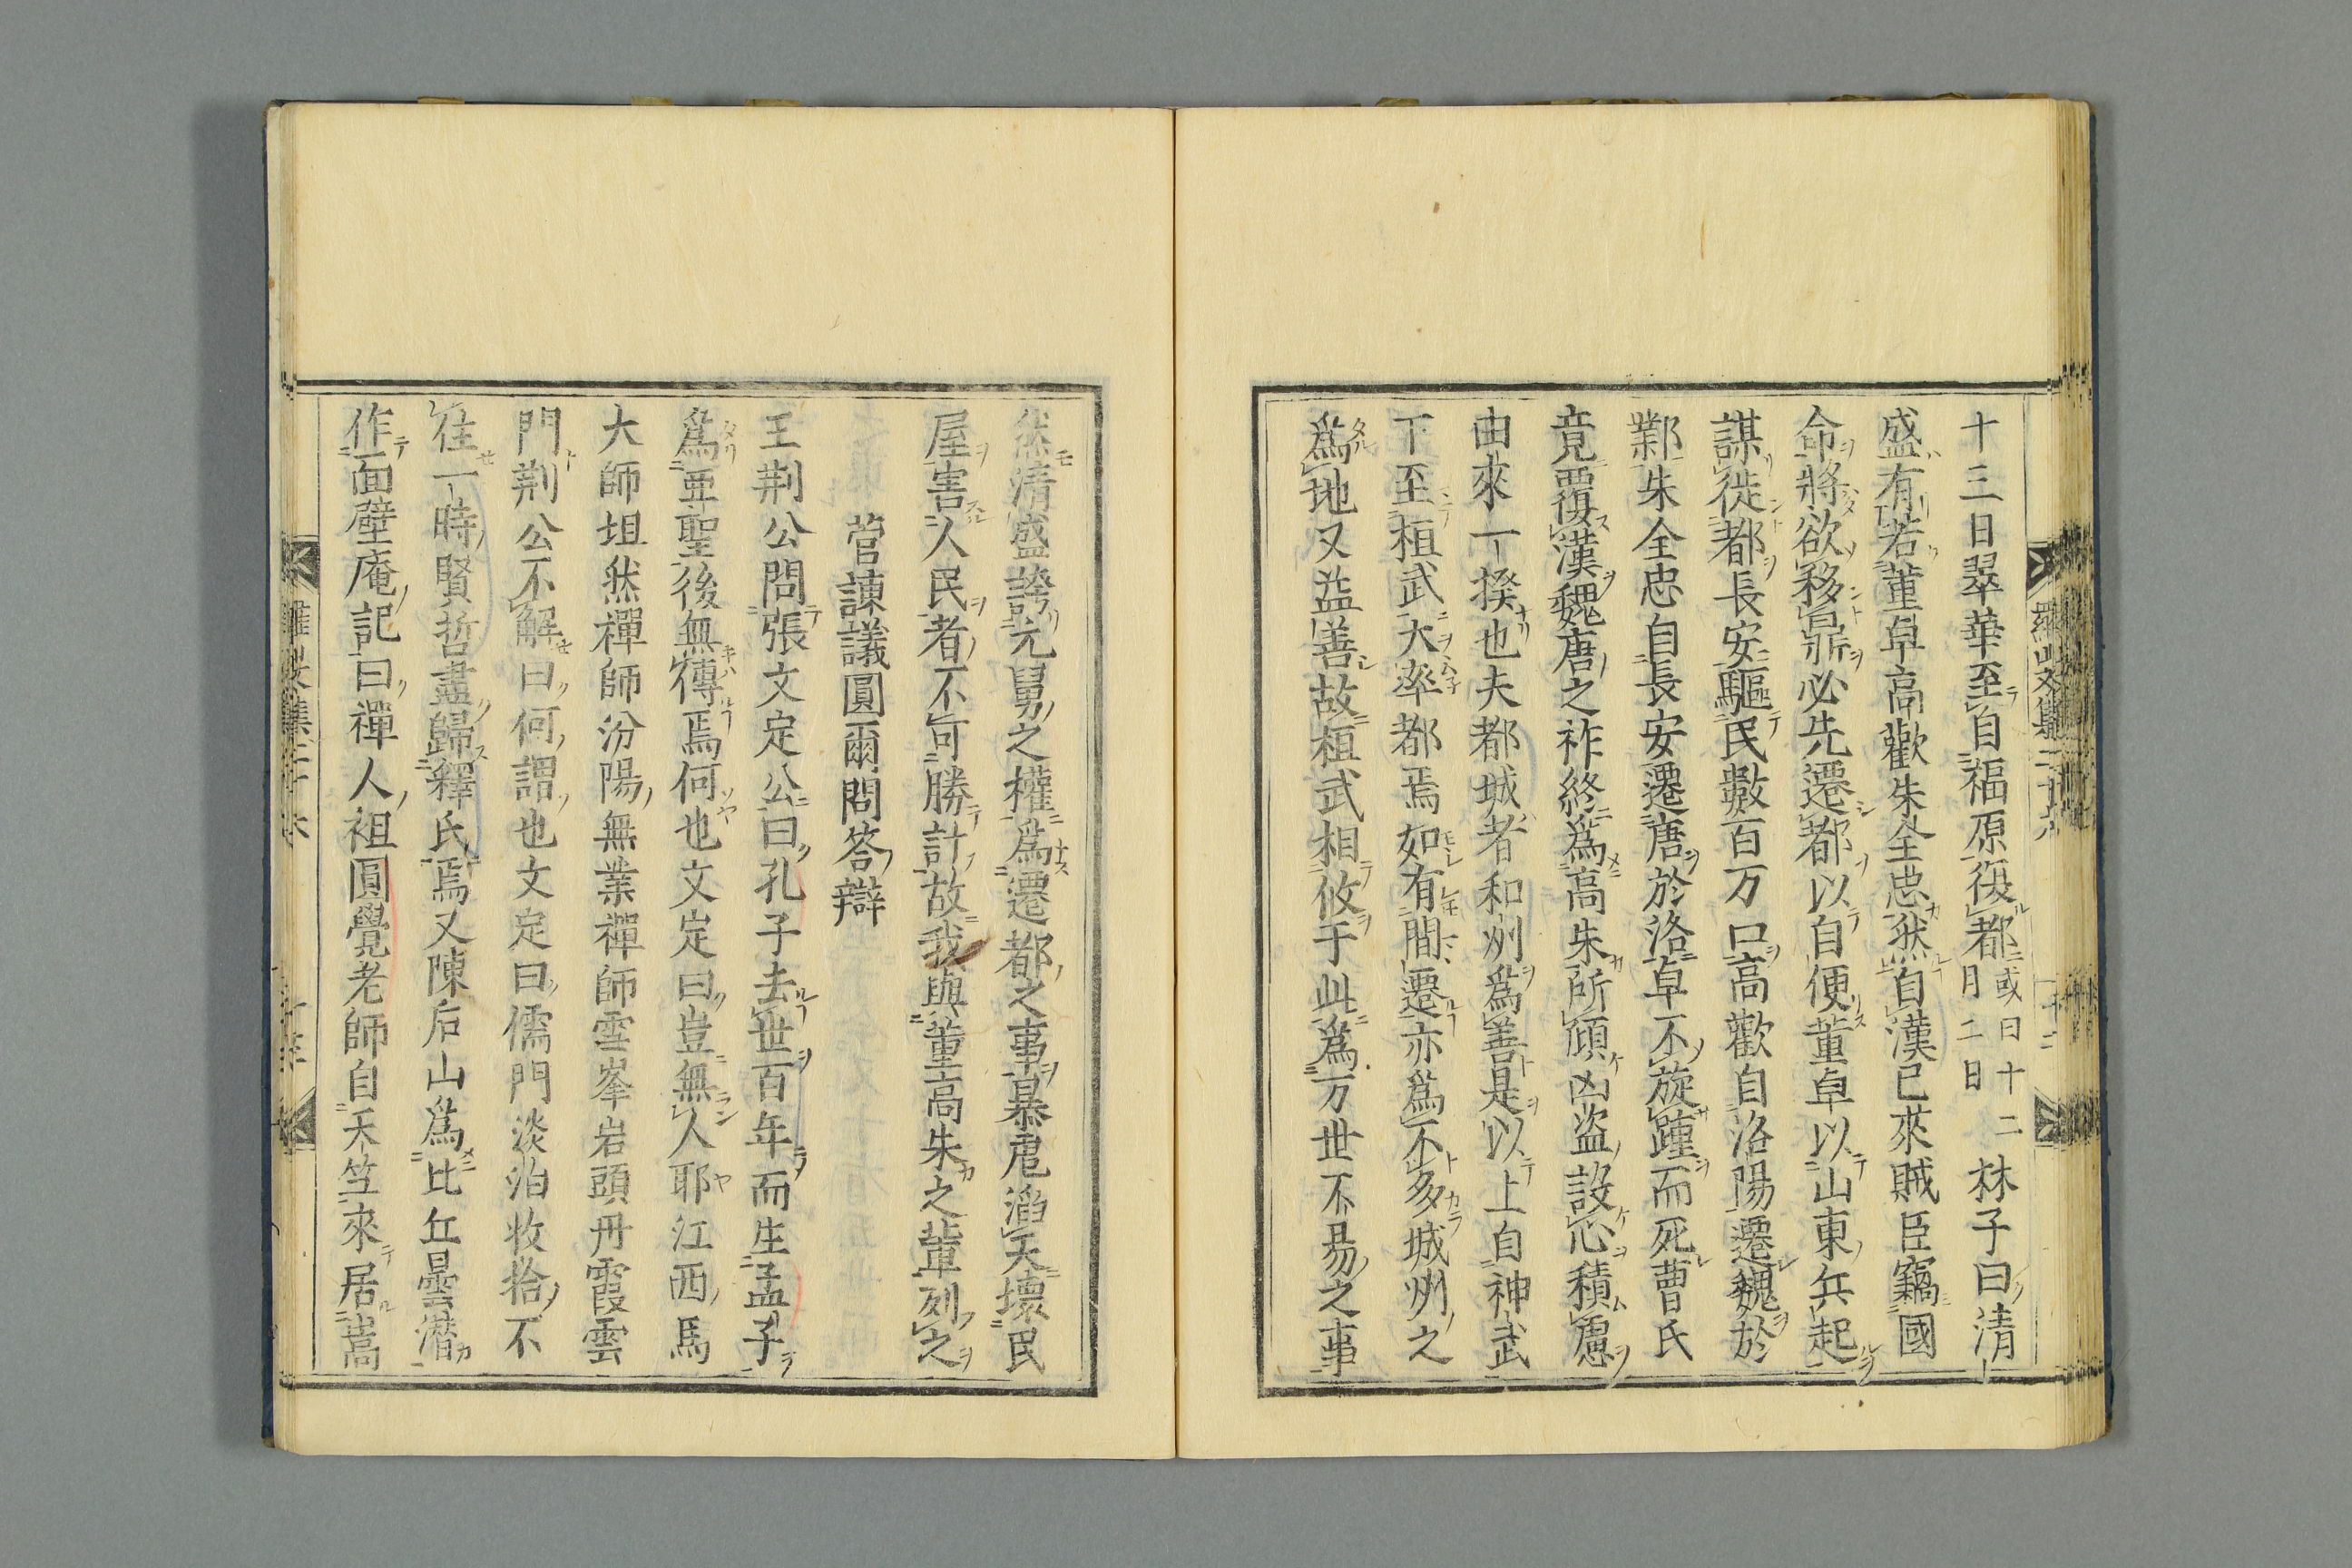 十三日翠華至自福原復都或曰十二月二日林子曰清
盛有若董卓高歡朱全忠然自漢已來賊臣竊國
命將欲移鼎必先遷都以自便董卓以山東兵起
謀徙都長安驅民數百万口高歡自洛陽遷魏於
鄴朱全忠自長安遷唐於洛卓不旋踵而死曹氏
竟覆漢魏唐之祚終爲高朱所傾凶盗設心積慮
由來一揆也夫都城者和州爲善是以上自神武
下至桓武大率都焉如有間遷亦爲不多城州之
爲地又益善故桓武相攸于此爲万世不易之事
然清盛誇元舅之權爲遷都之事暴虐滔天壞民
屋害人民者不可勝計故我與董高朱之輩列之
菅諫議圓爾問答辯
王荆公問張文定公曰孔子去世百年而生孟子
爲亜聖後無傳焉何也文定曰豈無人耶江西馬
大師坦然禪師汾陽無業禪師雪峯岩頭丹霞雲
門荆公不解曰何謂也文定曰儒門淡泊收拾不
住一時賢哲盡歸釋氏焉又陳后山爲比丘曇潜
作面壁庵記曰禪人祖圓覺老師自天竺來居嵩